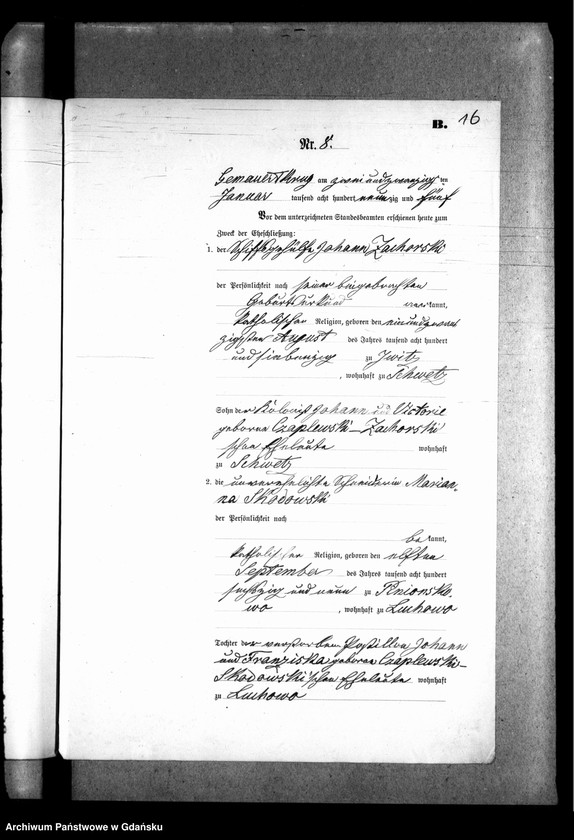 B. 16
Nr. 8.
am zweiundzwanzig ten
Januar tausend acht hundert neunzig und fünf
Vor dem unterzeichneten Standesbeamten erschienen heute zum
Zweck der Eheschließung:
1. der Schiffsgehülfe Johann Zachorski
der Persönlichkeit nach seiner beigebrachten
Geburtsurkund kannt,
katholischer Religion, geboren den einundzwan
zigsten August des Jahres tausend acht hundert
und siebenzig zu
, wohnhaft zu Schwetz
Sohn der Johann und Victorie
geborene Czaplewski - Zachorski
schen Eheleute wohnhaft
zu Schwetz
2. die unverehelichte Schneiderin Marian-
na Skodowski
der Persönlichkeit nach
be kannt,
katholischer Religion, geboren den elften
September des Jahres tausend acht hundert
sechszig und neun zu
wo , wohnhaft zu Luchowo
Tochter der verstorbenen Postillon Johann
und Franziska geborene Czaplewski-
Skodowski'schen Eheleute wohnhaft
zu Luchowo
Archiwum Państwowe w Gdańsku